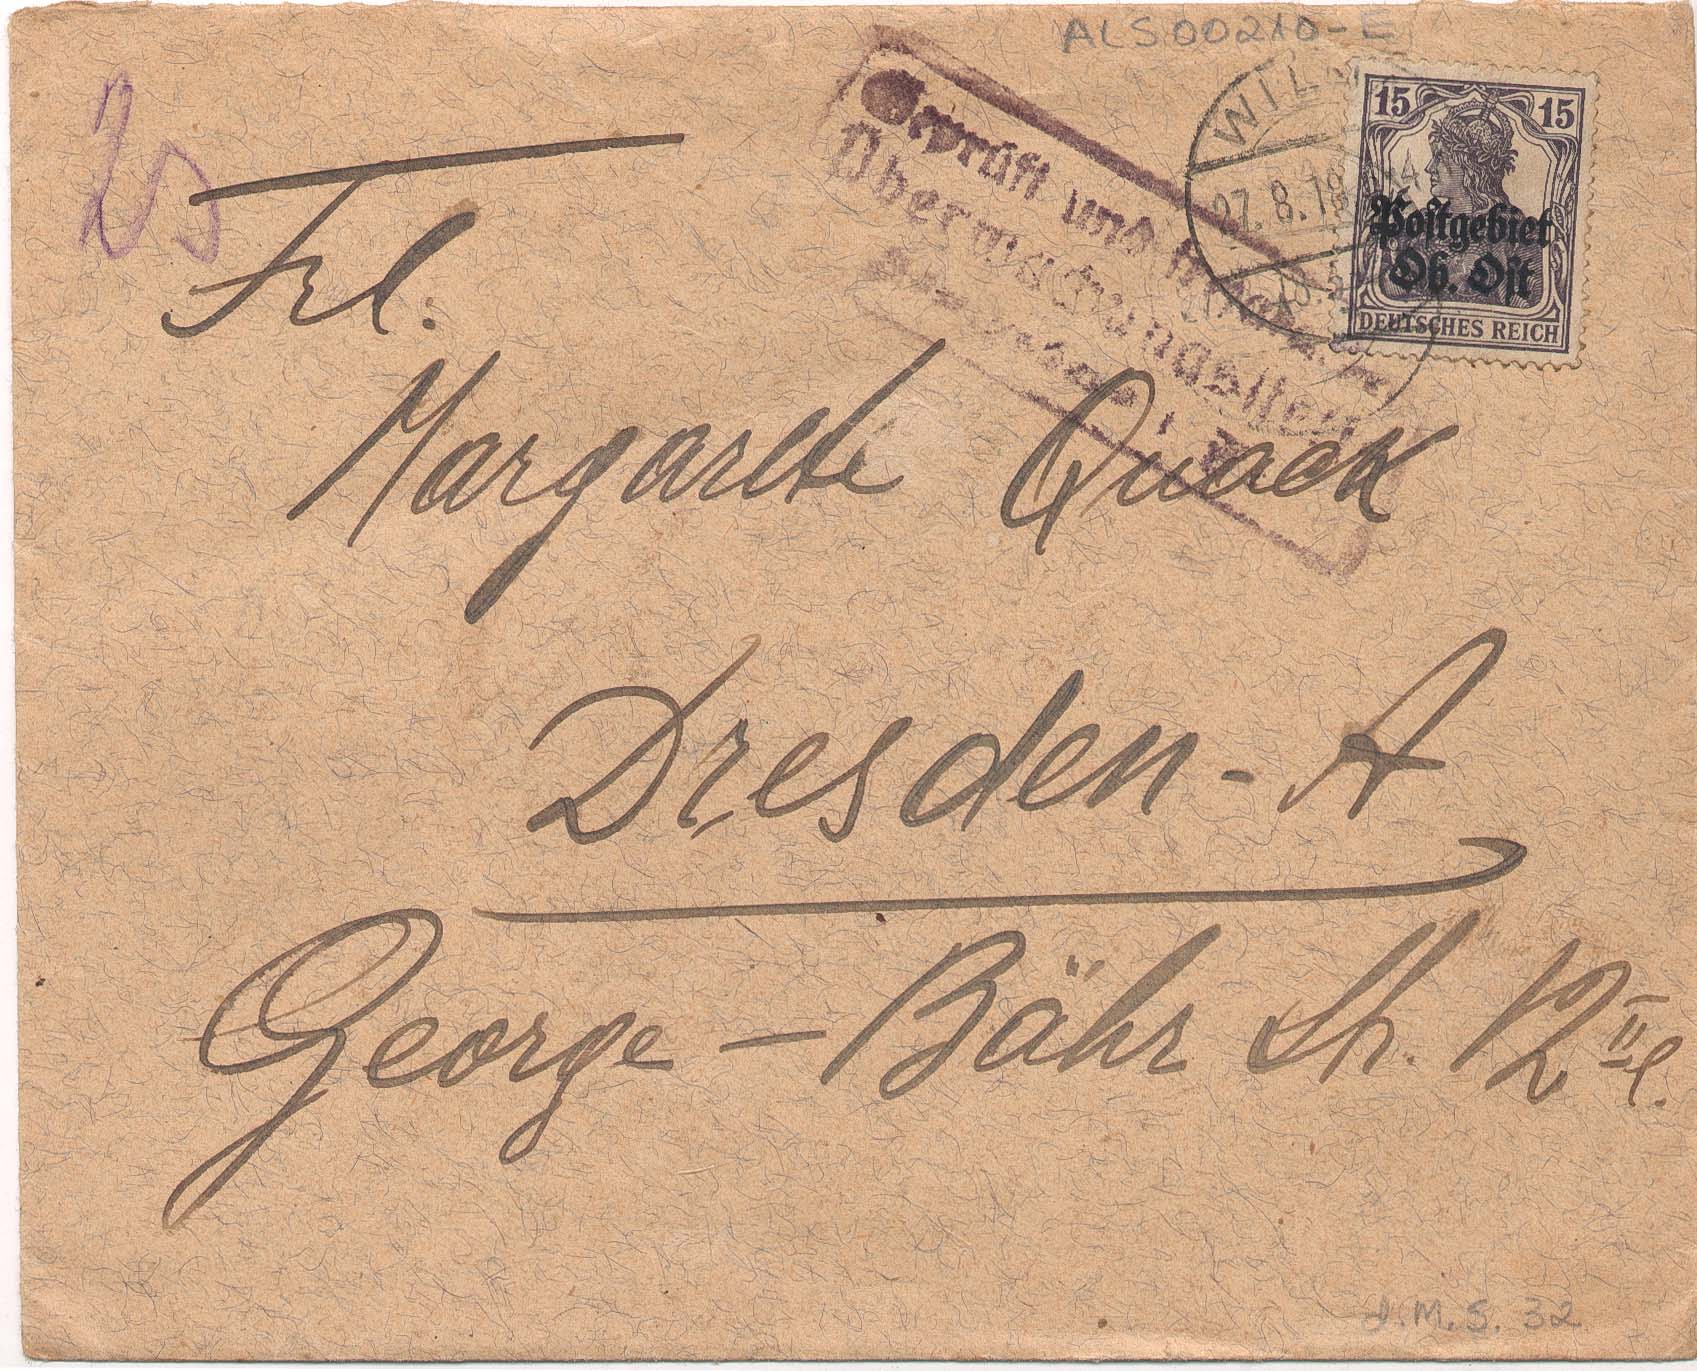 ALS00210-E
15 15
Postgebiet
Ob. Ost
DEUTSCHES REICH
27.8.18
Geprüft und
Überwachungsstelle
Frl.
Margarete Quack
Dresden-A
George-Bähr Str. 12 II l.
J.M.S. 32